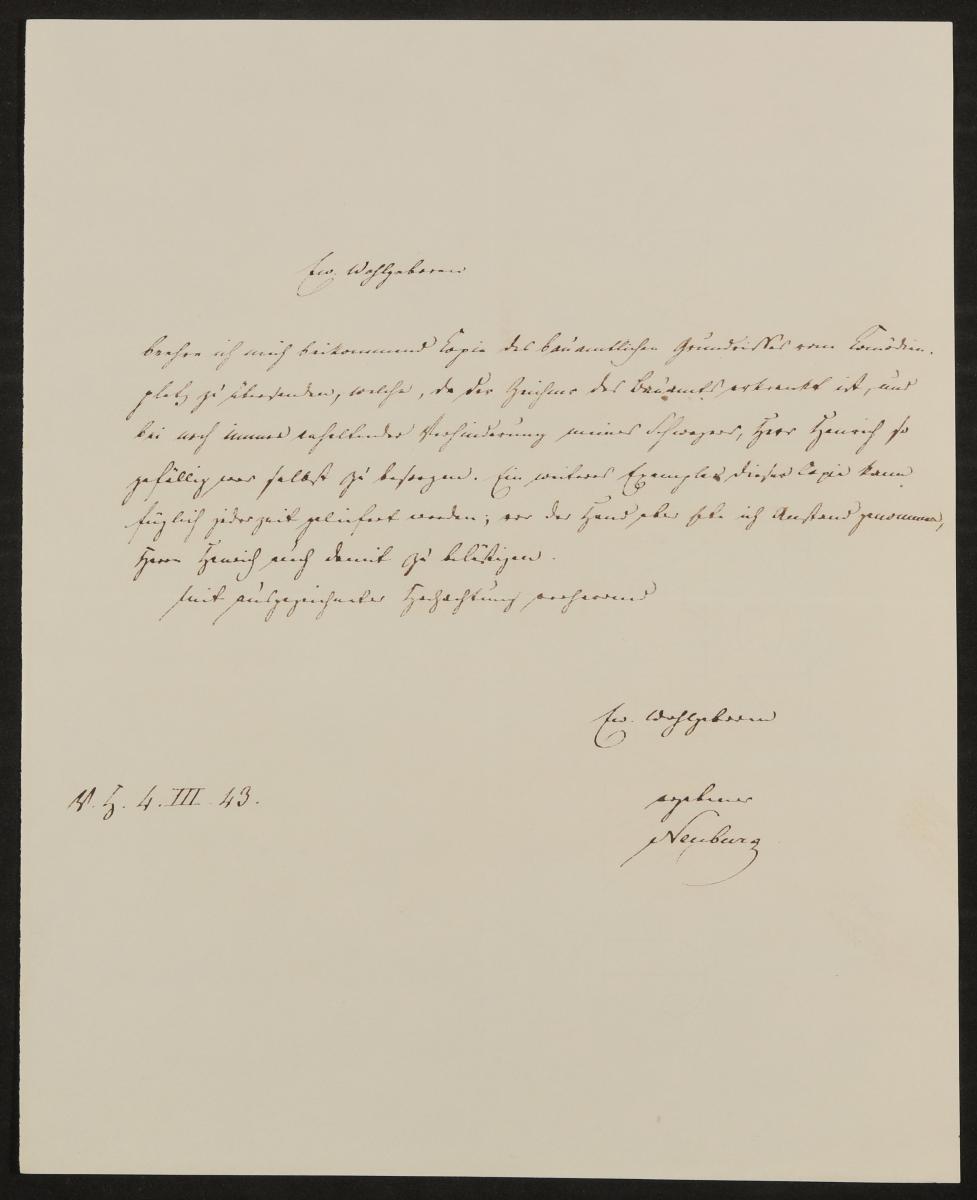 Ew. Wohlgeboren
beehre ich mich beikommend Copie des bauamtlichen Grundrisses vom Comödien-
platz zu übersenden, welche, da der Zeichner des Bauamts erkrankt ist, und
bei noch immer anhaltender Verhinderung meines Schwagers, Herr Henrich so
gefällig war selbst zu besorgen. Ein weiteres Exemplar dieser Copie kann
füglich jederzeit geliefert werden; vor der Hand aber habe ich Anstand genommen,
Herrn Henrich auch damit zu belästigen.
Mit ausgezeichneter Hochachtung verharrend
Ew. Wohlgeboren
V. H. 4. III. 43.
ergebener
Neuburg